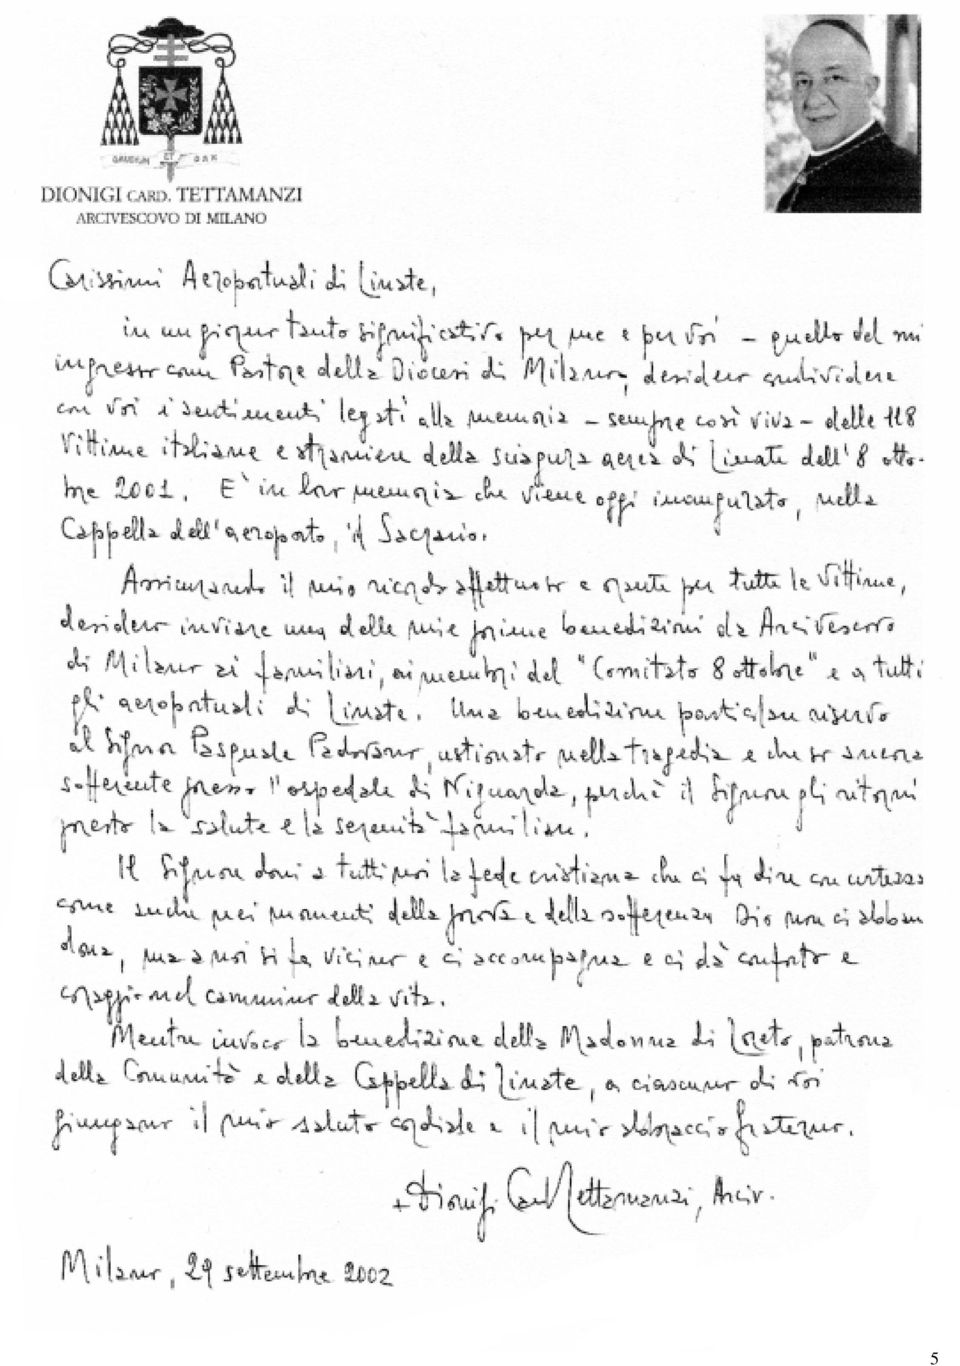 GAUDIUM ET PAX
DIONIGI CARD. TETTAMANZI
ARCIVESCOVO DI MILANO
Carissimi Aeroportuali di Linate,
in un giorno tanto significativo per me e per voi - quello del mio
ingresso come Pastore della Diocesi di Milano, desidero condividere
con voi i sentimenti legati alla memoria - sempre così viva - delle 118
Vittime italiane e straniere della sciagura aerea di Linate dell'8 otto-
bre 2001. E' in loro memoria che viene oggi inaugurato, nella
Cappella dell'aeroporto, il Sacrario.
Assicurando il mio ricordo affettuoso e orante per tutte le Vittime,
desidero inviare una delle mie prime benedizioni da Arcivescovo
di Milano ai familiari, ai membri del "Comitato 8 ottobre" e a tutti
gli aeroportuali di Linate. Una benedizione particolare riservo
al Signor Pasquale Padovano, ustionato nella tragedia e che so ancora
sofferente presso l'ospedale di Niguarda, perché il Signore gli ritorni
presto la salute e la serenità familiare.
Il Signore doni a tutti noi la fede cristiana che ci fa dire con certezza
come anche nei momenti della prova e della sofferenza Dio non ci abban
dona, ma a noi si fa vicino e ci accompagna e ci dà conforto e
coraggio nel cammino della vita.
Mentre invoco la benedizione della Madonna di Loreto, patrona
della Comunità e della Cappella di Linate, a ciascuno di voi
giungano il mio saluto cordiale e il mio abbraccio fraterno.
+ Dionigi Card. Tettamanzi, Arciv.
Milano, 29 settembre 2002
5